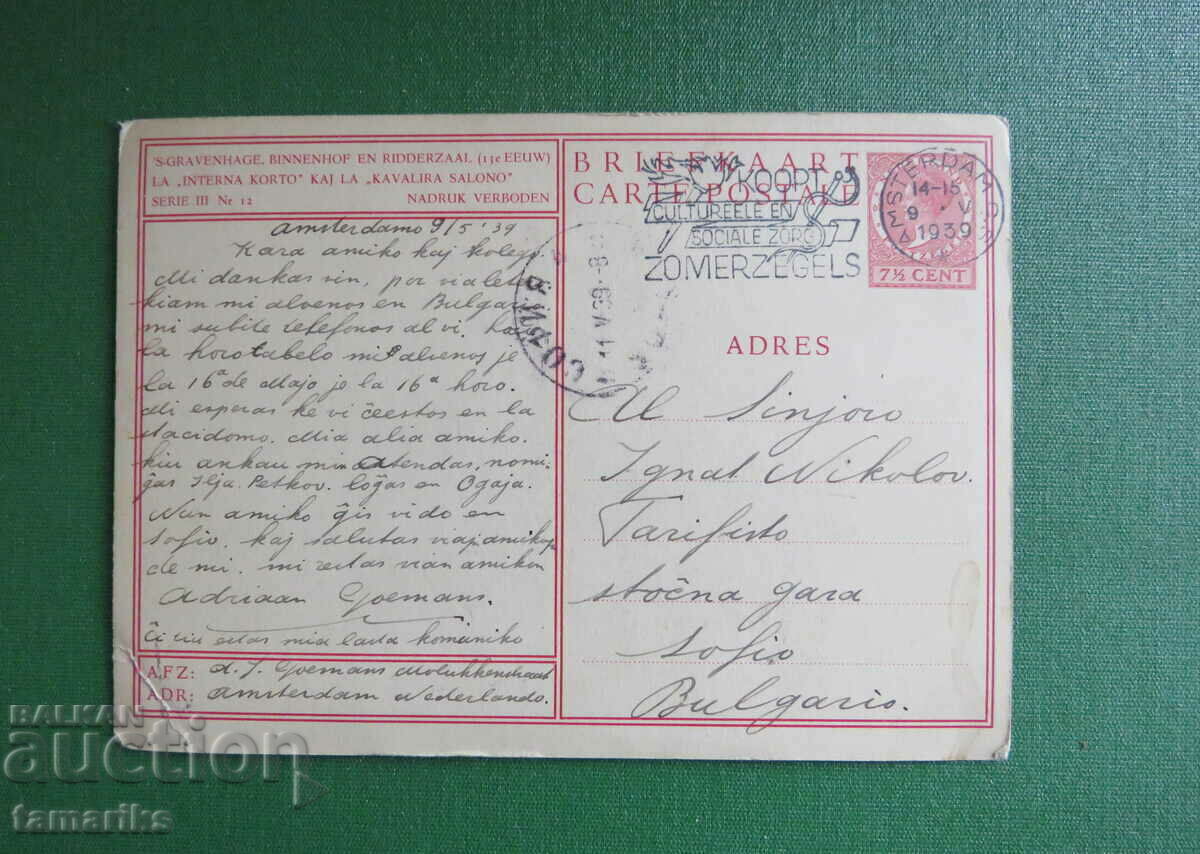 'S-GRAVENHAGE, BINNENHOF EN RIDDERZAAL (13e EEUW)
LA „INTERNA KORTO" KAJ LA „KAVALIRA SALONO"
SERIE III Nr 12 NADRUK VERBODEN
Amsterdamo 9/5 '39
Kara amiko kaj kolego.
Mi dankas vin, por via letero
kiam mi alvenos en Bulgario
mi subite telefonos al vi.
la horotabelo mi alvenos je
la 16a de Majo je la 16a horo.
Mi esperas ke vi ĉeestos en la
stacidomo. Mia alia amiko.
kiu ankau min atendas, nomi-
ĝas Ilja. Petkov. loĝas en
Nun amiko ĝis vido en
Sofio. kaj salutas viajn amikojn
de mi. mi restas vian amikon
Adriaan Goemans.
Ĉi tiu estas mia lasta komuniko
AFZ: A. J. Goemans Molukkenstraat
ADR: Amsterdam Nederlando.
BRIEFKAART
CARTE POSTALE
KOOPT
CULTUREELE EN
SOCIALE ZORG
ZOMERZEGELS
AMSTERDAM C.S.
14-15
9 V
1939
7½ CENT
11 V 39 - 8
ADRES
Al Sinjoro
Ignat Nikolov.
Tarifisto
stočna gara
Sofio
Bulgario.
BALKAN
auction
tamariks